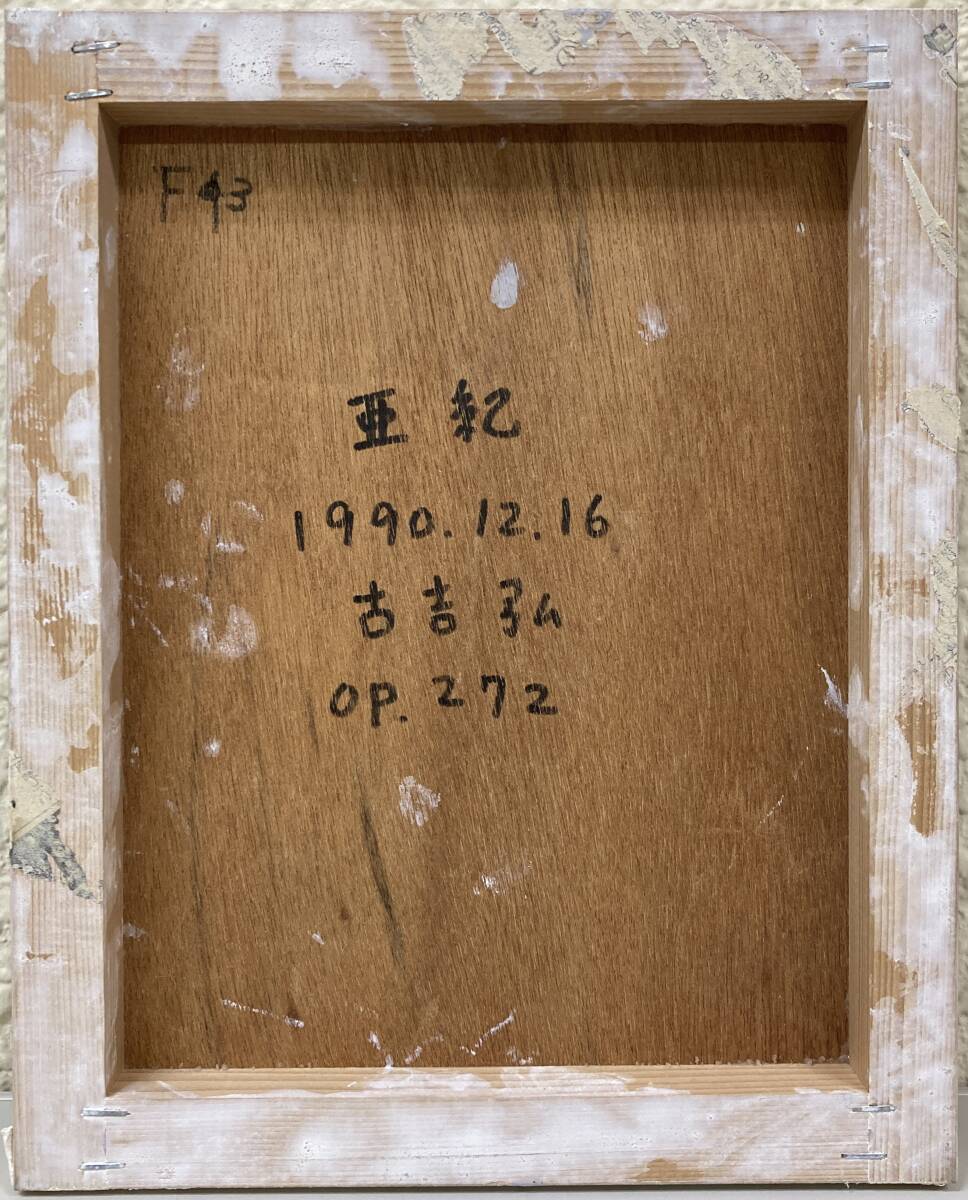 F43
亜紀
1990.12.16
古吉弘
OP.272